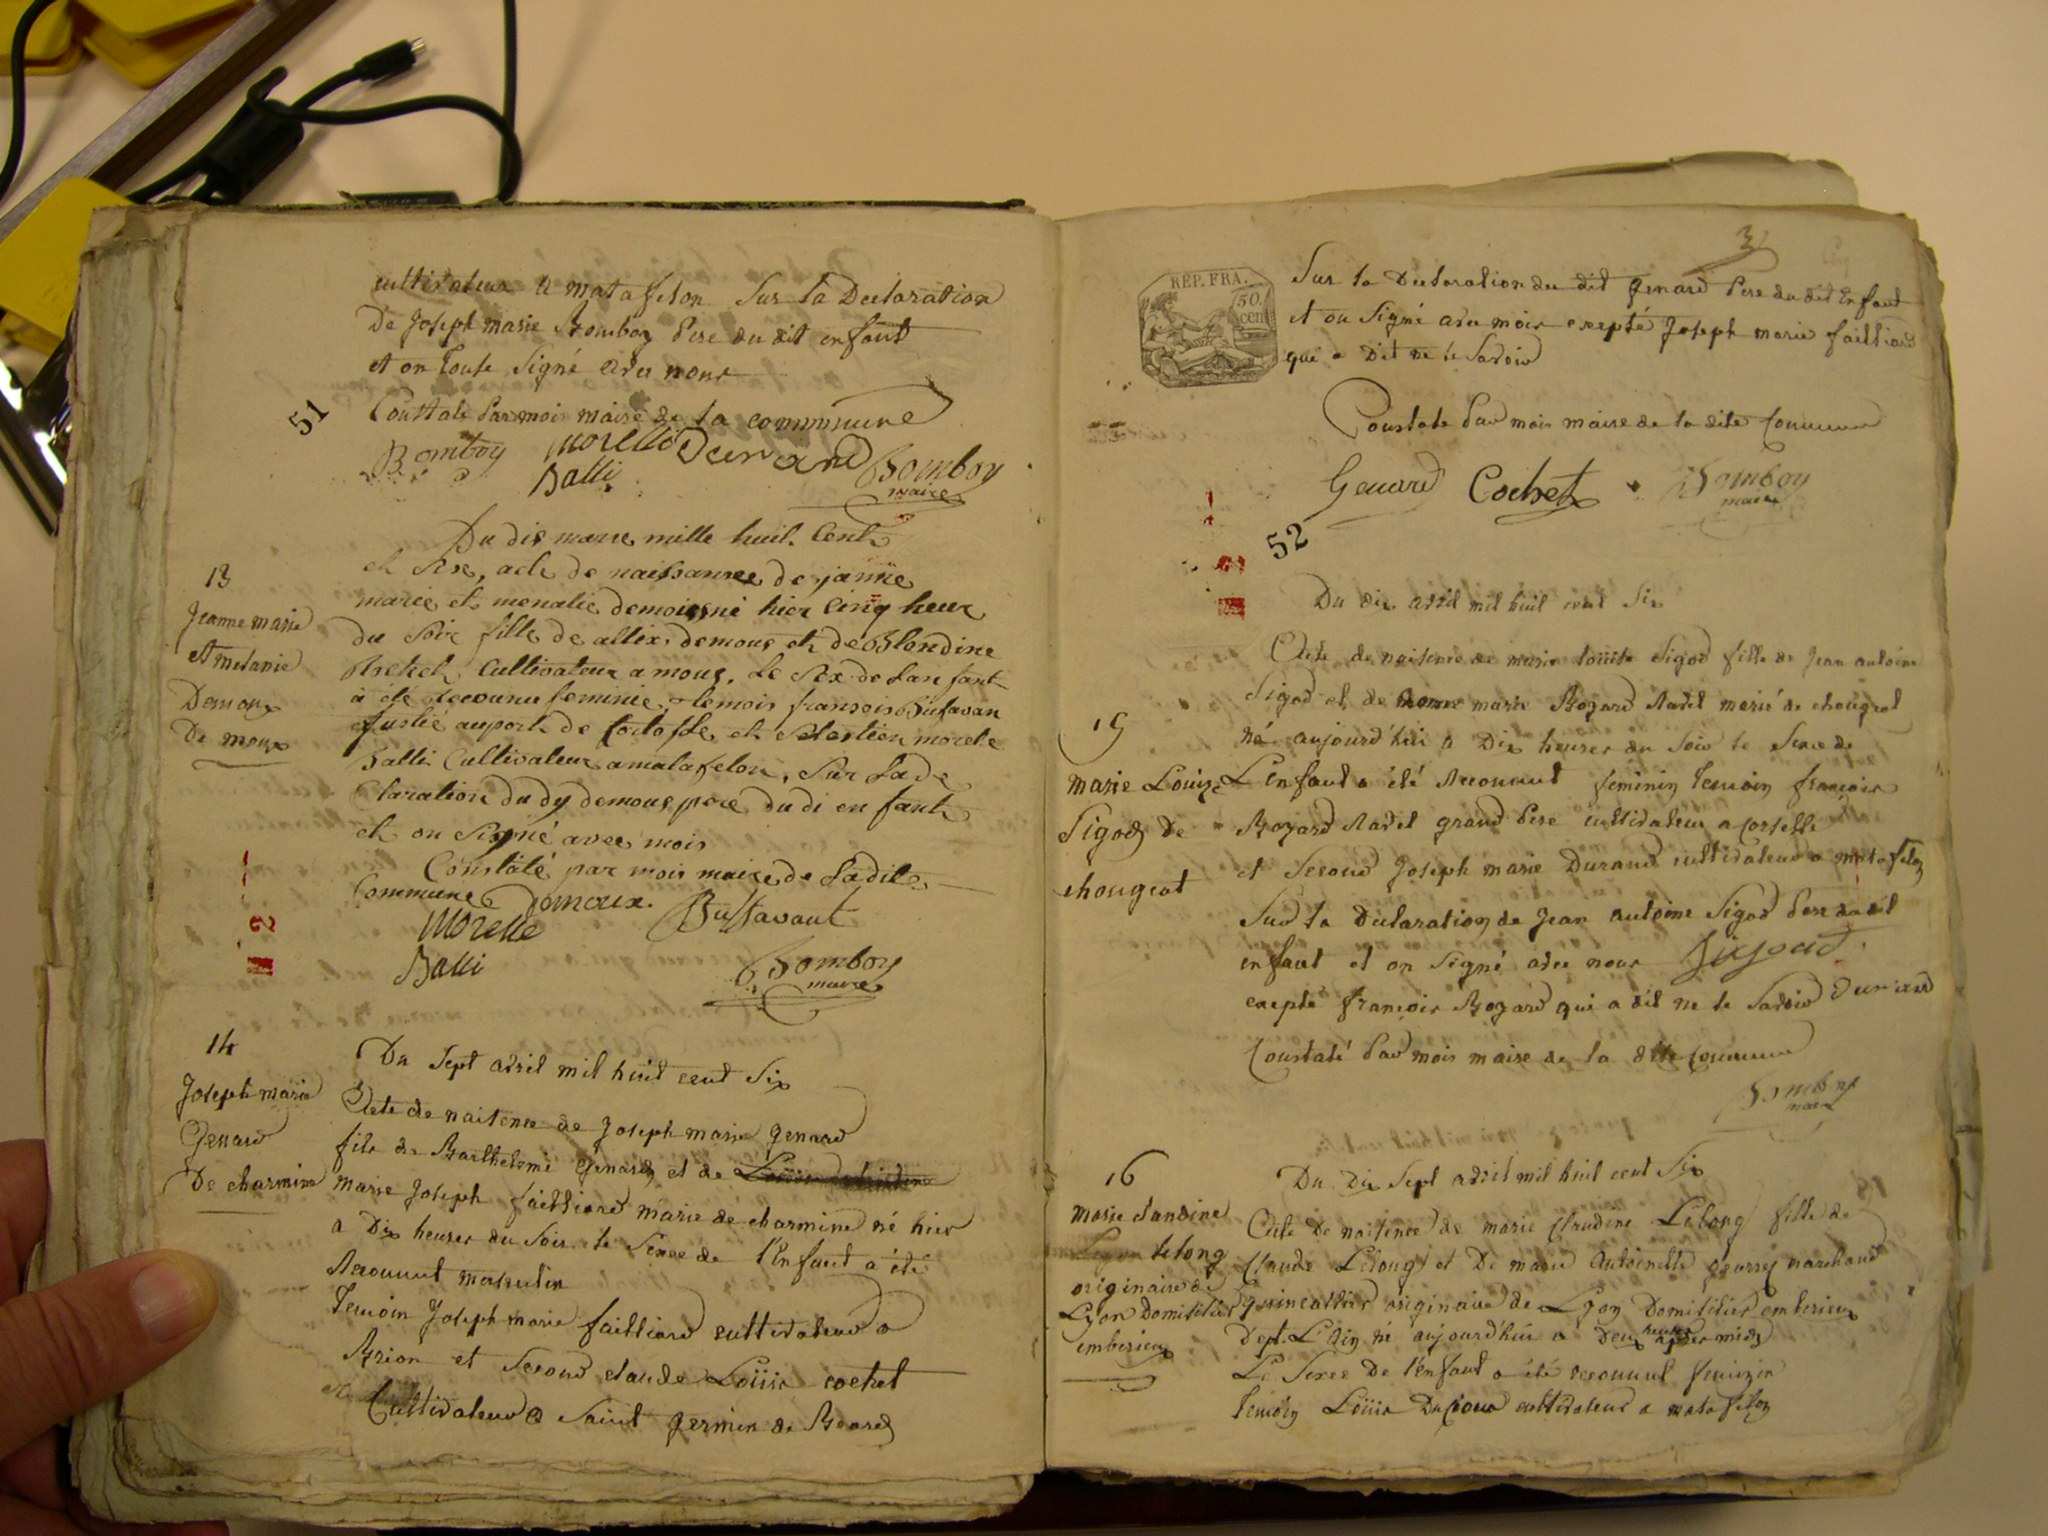 cultivateur a matafelon Sur la Declaration
De Joseph marie Bomboy Pere du dit enfant
et on toute Signé avec nous
Constaté Par moi maire de la commune
51
Bomboy morelle Durand Bomboy
Balli maire
Du dix mars mille huit Cent
et Six, acte de naissance de janne
13
Jeanne marie
et melanie
Demoux
De moux
marie et menalie demoux né hier Cinq heur
du Soir fille de allix demoux et de Blondine
Cultivateur a moux. Le Sex de Lanfant
à été recounu feminie, temois fransois Bufavan
au port de et Sebastien morele
Balli Cultivateur a matafelon, Sur La de
Claration du dy demoux pere du di enfant
et on Signé avec mois
Constaté par mois maire de Ladite
Commune Demoux. Buffavant
morelle
Balli Bomboy
maire
14
Joseph marie
Genard
De charmine
Du Sept avril mil huit cent Six
Acte de naitence de Joseph marie Genard
fils de Barthelemi Genard et de
marie Joseph failliard marie de charmine né hier
a Dix heures du Soir le Sexe de l'Enfant a été
Reconnut masculin
Temoin Joseph marie failliard cultivateur a
Brion et Second claude Loüis cochet
Cultivateur a Saint germin de Beard
3
REP. FRA.
50.
cen
Sur la Declaration du dit genard Pere du dit Enfant
et on Signé avec mois excepté Joseph marie failliard
qui a Dit ne le Savoir
Constaté Par mois maire de la dite Commune
Genard Cochet Bomboy
maire
52
Du dix avril mil huit cent Six
15
marie Louize
Sigod De
chougeat
Acte de naitence de marie Loüise Sigod fille de Jean antoine
Sigod et de marie Bozard Radel marié de chougeat
né aujourd'hui a Dix heures du Soir le Sexe de
L'Enfant a été Reconnut feminin Temoin francois
Bozard Radel grand Pere cultivateur a Corselle
et Second Joseph marie Durand cultivateur a matafelon
Sur la Declaration de Jean antoine Sigod Pere du dit
enfant et on Signé avec nous Sigoud
excepté francois Bozard qui a dit ne le Savoir Durand
Constaté Par mois maire de la dite Commune
Bomboy
maire
16
marie claudine
Lelong
originaire de
Lyon Domicilier
emberieux
Du Dix Sept avril mil huit cent Six
Acte De naitence de marie Claudine Lelong fille de
Claude Lelong et De marie Antoinette marchand
quincallier originaire de Lyon Domicilier emberieux
Dept. L'Ain né aujourd'hui a Deux heures après midy
Le Sexe De l'enfant a été reconnut feminin
Temoin Loüis Duciour cultivateur a matafelon